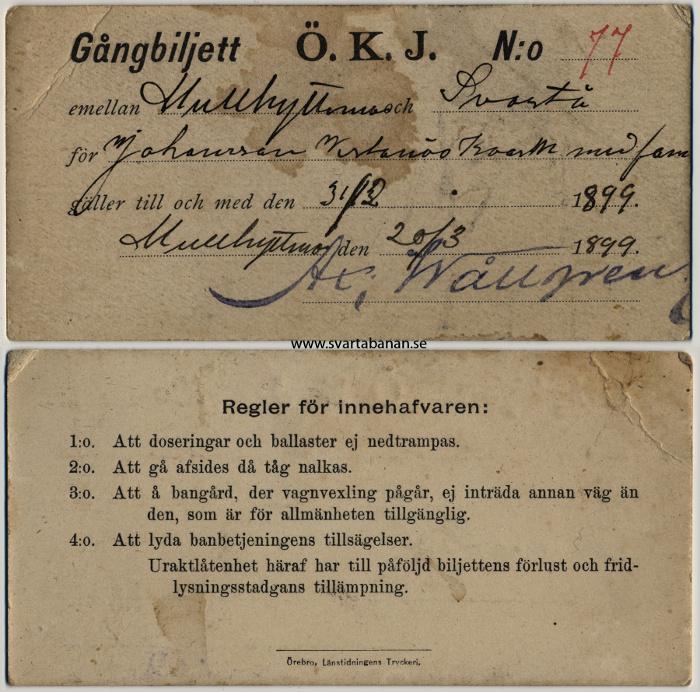 Gångbiljett Ö. K. J. N:o 77
emellan Mullhyttemo och Svartå
för Johansson med fam
gäller till och med den 31/12 1899.
Mullhyttemo den 20/3 1899.
Ax; Wållgren
www.svartabanan.se
Regler för innehafvaren:
1:o. Att doseringar och ballaster ej nedtrampas.
2:o. Att gå afsides då tåg nalkas.
3:o. Att å bangård, der vagnvexling pågår, ej inträda annan väg än
den, som är för allmänheten tillgänglig.
4:o. Att lyda banbetjeningens tillsägelser.
Uraktlåtenhet häraf har till påföljd biljettens förlust och frid-
lysningsstadgans tillämpning.
Örebro, Länstidningens Tryckeri.